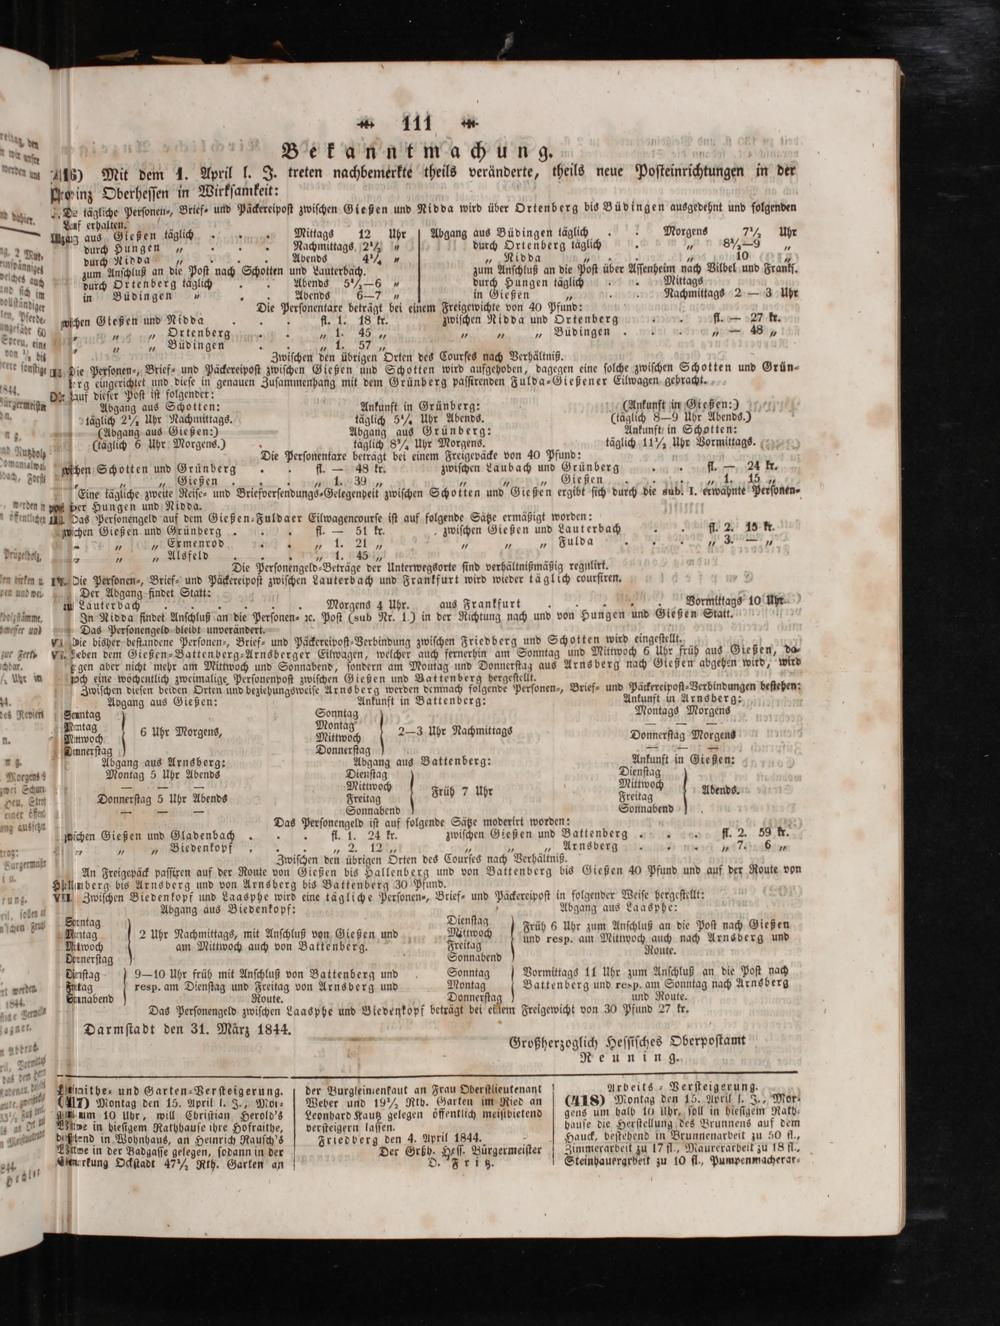 111
Bekanntmachung.
416) Mit dem 1. April l. J. treten nachbemerkte theils veränderte, theils neue Posteinrichtungen in der
Provinz Oberhessen in Wirksamkeit:
Die tägliche Personen-, Brief- und Päckereipost zwischen Gießen und Nidda wird über Ortenberg bis Büdingen ausgedehnt und folgenden
Lauf erhalten.
Abgang aus Gießen täglich . . . Mittags 12 Uhr
durch Hungen „ . . . Nachmittags 2½ „
durch Nidda „ . . . Abends 4¼ „
zum Anschluß an die Post nach Schotten und Lauterbach.
durch Ortenberg täglich . . Abends 5½—6 „
in Büdingen „ . . Abends 6—7 „
Abgang aus Büdingen täglich . . Morgens 7½ Uhr
durch Ortenberg täglich . „ 8½—9 „
„ Nidda „ . . „ 10 „
zum Anschluß an die Post über Assenheim nach Vilbel und Frankf.
durch Hungen täglich . . Mittags
in Gießen „ . . Nachmittags 2 — 3 Uhr
Die Personentare beträgt bei einem Freigewichte von 40 Pfund:
zwischen Gießen und Nidda . . . fl. 1. 18 kr. zwischen Nidda und Ortenberg . . fl. — 27 kr.
„ „ „ Ortenberg . . „ 1. 45 „ „ „ „ Büdingen . . „ — 48 „
„ „ „ Büdingen . . „ 1. 57 „
Zwischen den übrigen Orten des Courses nach Verhältniß.
Die Personen-, Brief- und Päckereipost zwischen Gießen und Schotten wird aufgehoben, dagegen eine solche zwischen Schotten und Grün-
berg eingerichtet und diese in genauen Zusammenhang mit dem Grünberg passirenden Fulda-Gießener Eilwagen gebracht.
Der Lauf dieser Post ist folgender:
Abgang aus Schotten: Ankunft in Grünberg: (Ankunft in Gießen:)
täglich 2½ Uhr Nachmittags. täglich 5¼ Uhr Abends. (täglich 8—9 Uhr Abends.)
(Abgang aus Gießen:) Abgang aus Grünberg: Ankunft in Schotten:
(täglich 6 Uhr Morgens.) täglich 8¾ Uhr Morgens. täglich 11½ Uhr Vormittags.
Die Personentare beträgt bei einem Freigepäcke von 40 Pfund:
zwischen Schotten und Grünberg . . fl. — 48 kr. zwischen Laubach und Grünberg . . fl. — 24 kr.
„ „ „ Gießen . . „ 1. 39 „ „ „ „ Gießen . . „ 1. 15 „
Eine tägliche zweite Reise- und Briefversendungs-Gelegenheit zwischen Schotten und Gießen ergibt sich durch die sub. I. erwähnte Personen-
post über Hungen und Nidda.
III. Das Personengeld auf dem Gießen-Fuldaer Eilwagencourse ist auf folgende Sätze ermäßigt worden:
zwischen Gießen und Grünberg . . fl. — 51 kr. zwischen Gießen und Lauterbach . . fl. 2. 15 kr.
„ „ „ Ermenrod . . „ 1. 21 „ „ „ „ Fulda . . „ 3. — „
„ „ „ Alsfeld . . „ 1. 45 „
Die Personengeld-Beträge der Unterwegsorte sind verhältnißmäßig regulirt.
IV. Die Personen-, Brief- und Päckereipost zwischen Lauterbach und Frankfurt wird wieder täglich coursiren.
Der Abgang findet Statt:
zu Lauterbach . . . . . Morgens 4 Uhr. aus Frankfurt . . . . Vormittags 10 Uhr.
In Nidda findet Anschluß an die Personen- ꝛc. Post (sub Nr. 1.) in der Richtung nach und von Hungen und Gießen Statt.
Das Personengeld bleibt unverändert.
V. Die bisher bestandene Personen-, Brief- und Päckereipost-Verbindung zwischen Friedberg und Schotten wird eingestellt.
VI. Neben dem Gießen-Battenberg-Arnsberger Eilwagen, welcher auch fernerhin am Sonntag und Mittwoch 6 Uhr früh aus Gießen, da-
gegen aber nicht mehr am Mittwoch und Sonnabend, sondern am Montag und Donnerstag aus Arnsberg nach Gießen abgehen wird, wird
noch eine wöchentlich zweimalige Personenpost zwischen Gießen und Battenberg hergestellt.
Zwischen diesen beiden Orten und beziehungsweise Arnsberg werden demnach folgende Personen-, Brief- und Päckereipost-Verbindungen bestehen:
Abgang aus Gießen: Ankunft in Battenberg: Ankunft in Arnsberg:
Sonntag Sonntag Montags Morgens
Montag Montag — — —
Mittwoch 6 Uhr Morgens, Mittwoch 2—3 Uhr Nachmittags Donnerstag Morgens
Donnerstag Donnerstag — — —
Abgang aus Arnsberg: Abgang aus Battenberg: Ankunft in Gießen:
Montag 5 Uhr Abends Dienstag Dienstag
— — — Mittwoch Früh 7 Uhr Mittwoch Abends.
Donnerstag 5 Uhr Abends Freitag Freitag
— — — Sonnabend Sonnabend
Das Personengeld ist auf folgende Sätze moderirt worden:
zwischen Gießen und Gladenbach . . . fl. 1. 24 kr. zwischen Gießen und Battenberg . . . fl. 2. 59 kr.
„ „ „ Biedenkopf . . . „ 2. 12 „ „ „ „ Arnsberg . . . „ 7. 6 „
Zwischen den übrigen Orten des Courses nach Verhältniß.
An Freigepäck passiren auf der Route von Gießen bis Hallenberg und von Battenberg bis Gießen 40 Pfund und auf der Route von
Hallenberg bis Arnsberg und von Arnsberg bis Battenberg 30 Pfund.
VII. Zwischen Biedenkopf und Laasphe wird eine tägliche Personen-, Brief- und Päckereipost in folgender Weise hergestellt:
Abgang aus Biedenkopf: Abgang aus Laasphe:
Sonntag
Montag
Mittwoch
Donnerstag
2 Uhr Nachmittags, mit Anschluß von Gießen und
am Mittwoch auch von Battenberg.
Dienstag
Mittwoch
Freitag
Sonnabend
Früh 6 Uhr zum Anschluß an die Post nach Gießen
und resp. am Mittwoch auch nach Arnsberg und
Route.
Dienstag
Freitag
Sonnabend
9—10 Uhr früh mit Anschluß von Battenberg und
resp. am Dienstag und Freitag von Arnsberg und
Route.
Sonntag
Montag
Donnerstag
Vormittags 11 Uhr zum Anschluß an die Post nach
Battenberg und resp. am Sonntag nach Arnsberg
und Route.
Das Personengeld zwischen Laasphe und Biedenkopf beträgt bei einem Freigewicht von 30 Pfund 27 kr.
Darmstadt den 31. März 1844.
Großherzoglich Hessisches Oberpostamt
Reuning.
Hofraithe- und Garten-Versteigerung.
(417) Montag den 15. April l. J., Mor-
gens um 10 Uhr, will Christian Herold's
Wittwe in hiesigem Rathhause ihre Hofraithe,
bestehend in Wohnhaus, an Heinrich Rausch's
Wittwe in der Badgasse gelegen, sodann in der
Gemarkung Ockstadt 47½ Rth. Garten an
der Burgleimenkaut an Frau Oberstlieutenant
Weber und 19½ Rth. Garten im Ried an
Leonhard Kautz gelegen öffentlich meistbietend
versteigern lassen.
Friedberg den 4. April 1844.
Der Grßh. Hess. Bürgermeister
D. Fritz.
Arbeits-Versteigerung.
(418) Montag den 15. April l. J., Mor-
gens um halb 10 Uhr, soll in hiesigem Rath-
hause die Herstellung des Brunnens auf dem
Hauck, bestehend in Brunnenarbeit zu 50 fl.,
Zimmerarbeit zu 17 fl., Maurerarbeit zu 18 fl.,
Steinhauerarbeit zu 10 fl., Pumpenmacherar-